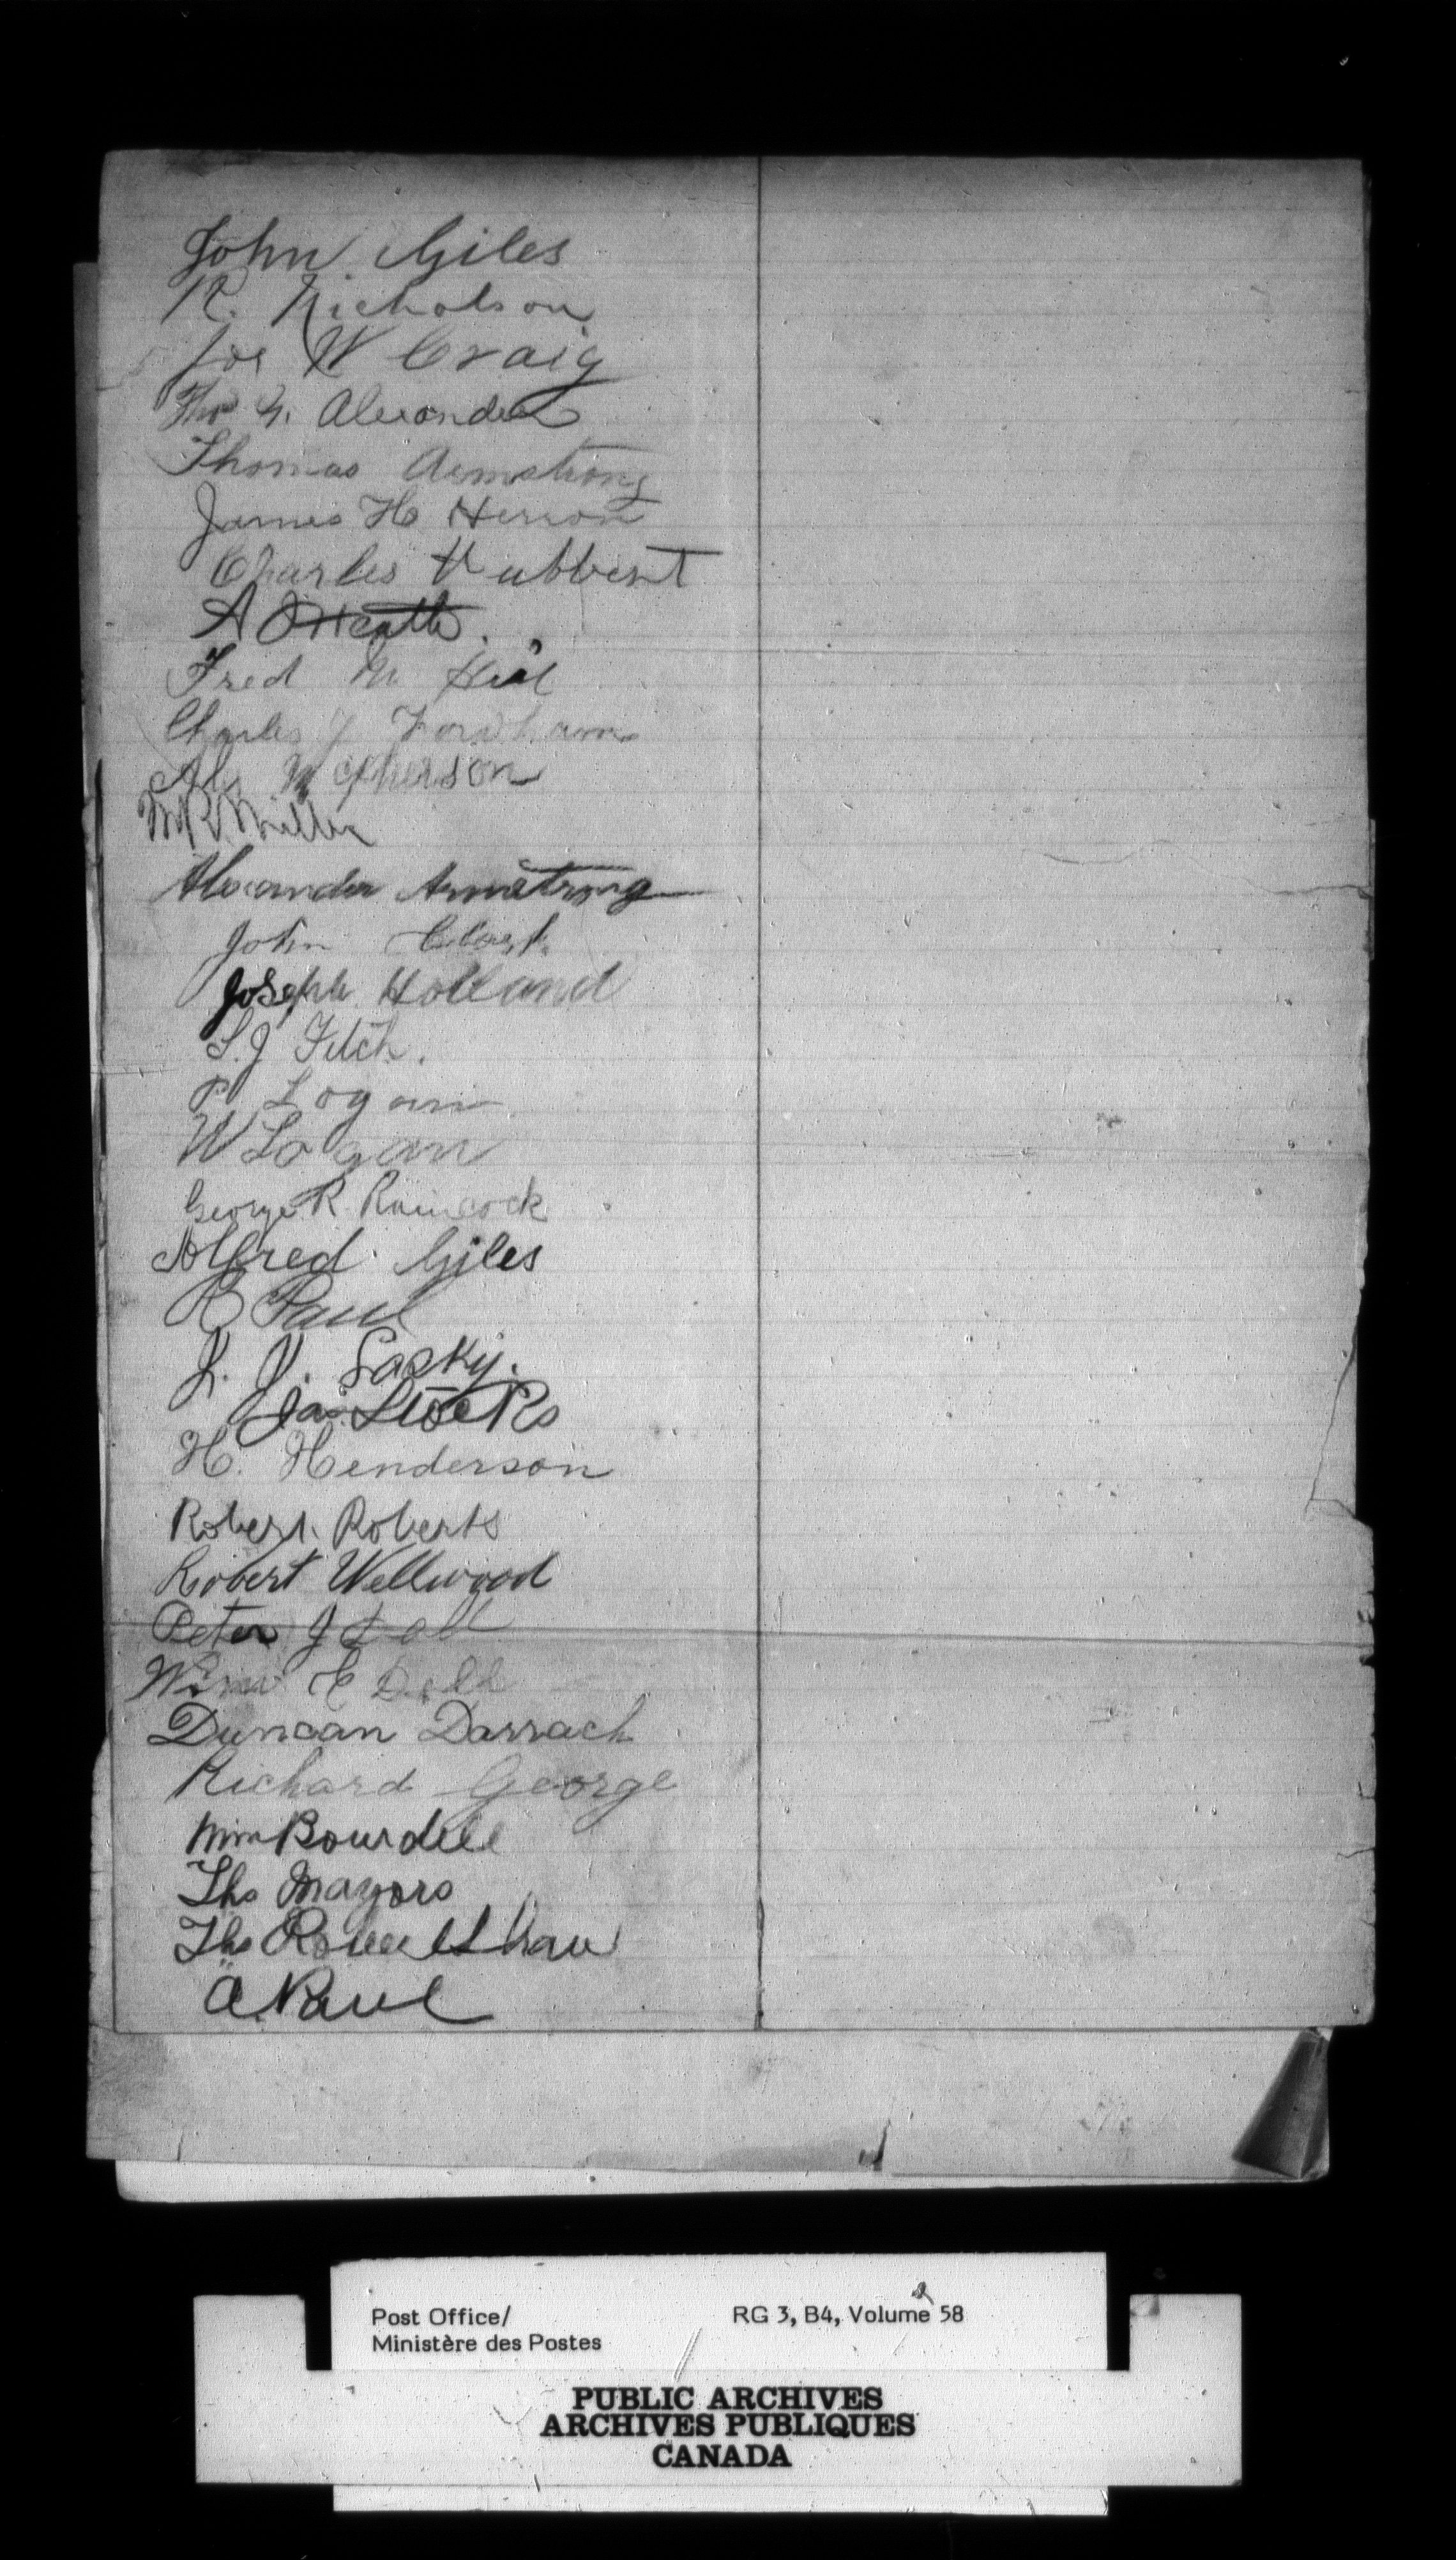 John Giles
R. Nicholson
Jos W Craig
Thos G. Alexander
Thomas Armstrong
James H Herron
Charles Hubbert
A Heath.
Fred M Hill
Charles J Fordham
Mcpherson
Miller
Alexander Armstrong
John Clark
Joseph Holland
S.J Fitch.
P Logan
W Logan
George R. Raincock
Alfred Giles
R Paul
Lasky.
Jas Stocks
H. Henderson
Robert Roberts
Robert Wellwood
Peter J Doll
Wm E Doll
Duncan Darrach
Richard George
Wm Bourdell
Tho Mayors
Tho
A. Paul
Post Office/ RG 3, B4, Volume 58
Ministère des Postes
PUBLIC ARCHIVES
ARCHIVES PUBLIQUES
CANADA